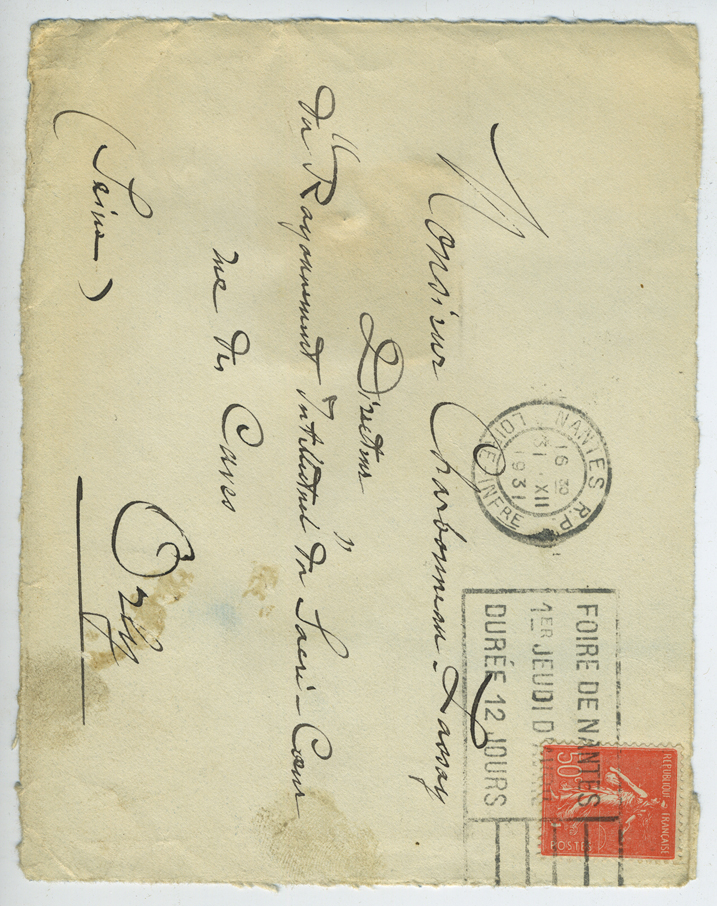 Monsieur Charbonneau-Lassay
Directeur
du "Rayonnement Intellectuel du Sacré-Cœur"
rue des Caves
Orly
(Seine)
NANTES R.P.
16 30
31 XII
1931
LOIRE INFRE
FOIRE DE NANTES
1ER JEUDI D
DURÉE 12 JOURS
RÉPUBLIQUE FRANÇAISE
50c
POSTES